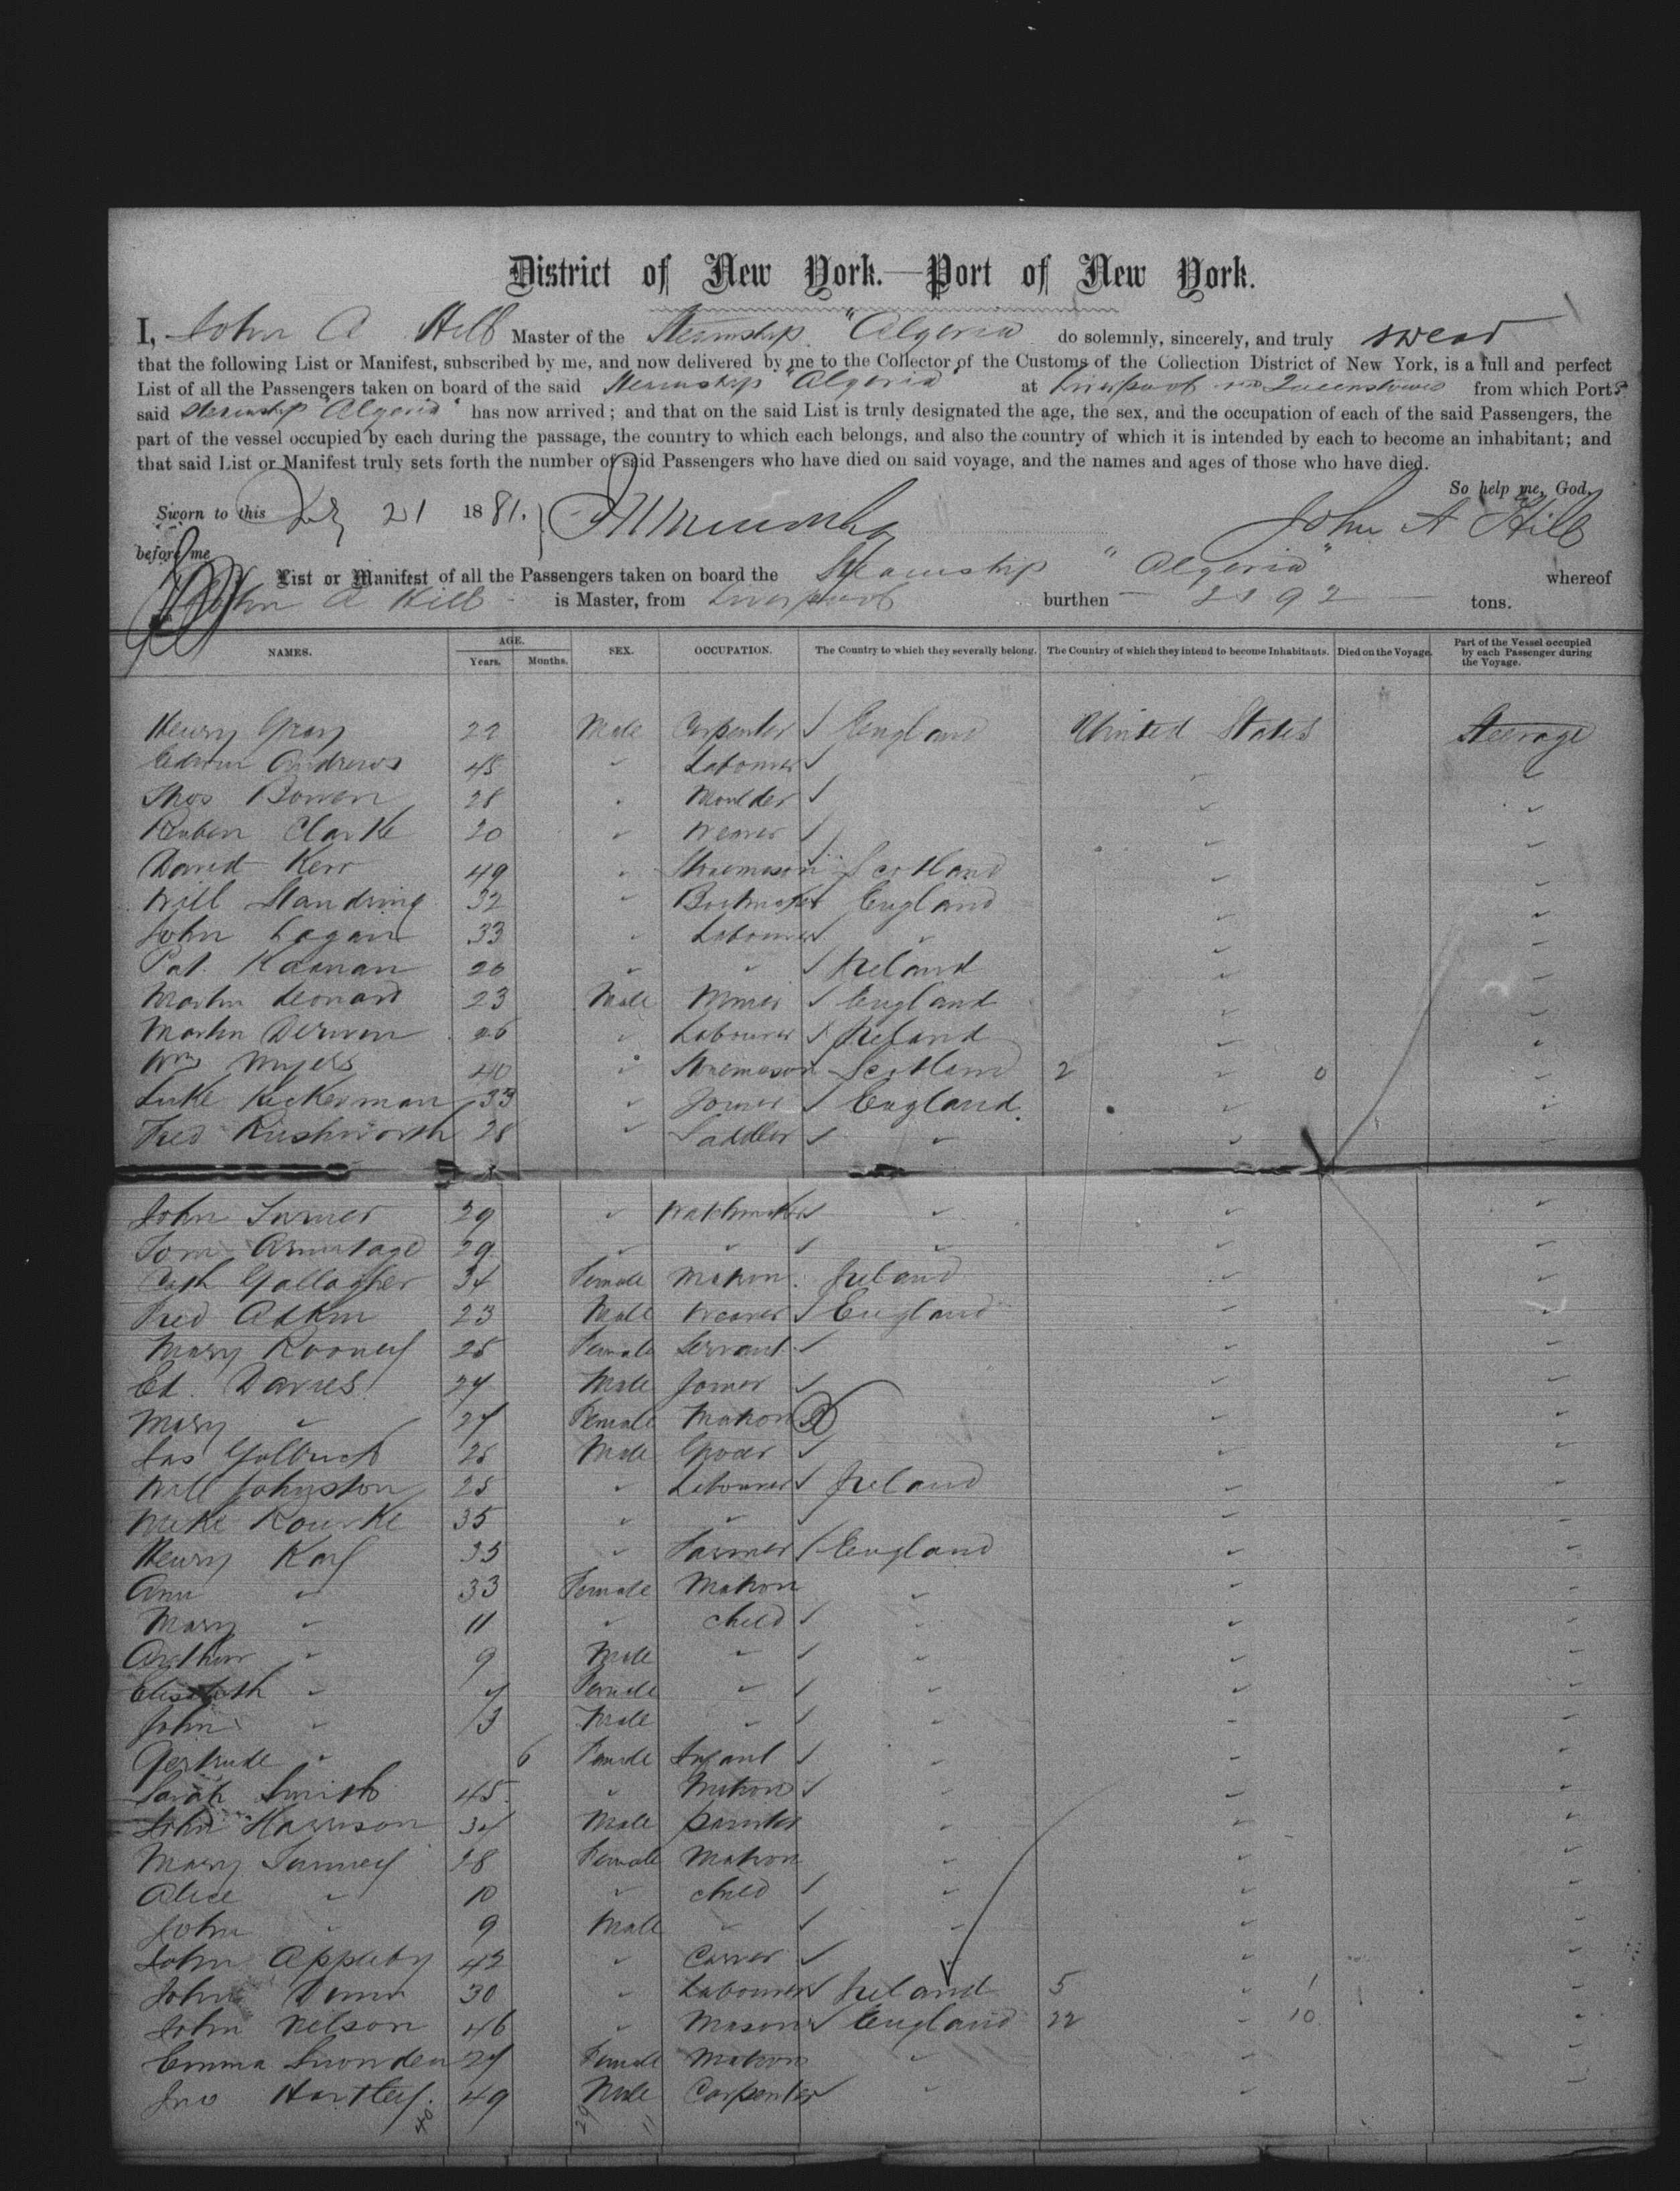 District of New York.—Port of New York.
I, John A Hill Master of the Steamship "Algeria" do solemnly, sincerely, and truly swear
that the following List or Manifest, subscribed by me, and now delivered by me to the Collector of the Customs of the Collection District of New York, is a full and perfect
List of all the Passengers taken on board of the said Steamship "Algeria" at Liverpool Queenstown from which Ports
said Steamship "Algeria" has now arrived; and that on the said List is truly designated the age, the sex, and the occupation of each of the said Passengers, the
part of the vessel occupied by each during the passage, the country to which each belongs, and also the country of which it is intended by each to become an inhabitant; and
that said List or Manifest truly sets forth the number of said Passengers who have died on said voyage, and the names and ages of those who have died.
So help me, God.
Sworn to this 21 1881. John A Hill
before me
List or Manifest of all the Passengers taken on board the Steamship "Algeria" whereof
John A Hill is Master, from Liverpool burthen 2192 tons.
NAMES. AGE. Years. Months. SEX. OCCUPATION. The Country to which they severally belong. The Country of which they intend to become Inhabitants. Died on the Voyage. Part of the Vessel occupied by each Passenger during the Voyage.
Henry Gray 22 Male Carpenter England United States Steerage
Edwin Andrews 45 " Labourer
Thos Bowen 28 " Moulder
Reuben Clarke 20 " Weaver
David Kerr 49 " Stonemason Scotland
Will Standring 32 " England
John Logan 33 " Labourer "
Pat. 20 " " Ireland
Martin Leonard 23 Male Miner England
Martin 26 " Labourer Ireland
Wm Myers 40 " Stonemason Scotland 2 0
Luke Kickerman 33 " Joiner England.
Fred Rushworth 28 " Saddler "
John Turner 29 " Watchmaker "
Tom Armitage 29 " " "
Gallagher 34 Female Matron Ireland
Fred Adkin 23 Male Weaver England
Mary Rooney 25 Female Servant
Ed. Davies 24 Male Joiner
Mary " 24 Female Matron
Jas 25 Male Grocer
Will Johnston 25 " Labourer Ireland
Mike Rourke 35 " "
Henry Kay 35 " Farmer England
Ann " 33 Female Matron "
Mary " 11 " Child "
Arthur " 9 Male " "
Elizabeth " 4 Female " "
John " 3 Male " "
Gertrude " 6 Female Infant "
Sarah Smith 45 " Matron "
John Harrison 34 Male Painter "
Mary 28 Female Matron "
Alice " 10 " Child "
John " 9 Male " "
John Appleby 42 " Carver
John Dunn 30 " Labourer Ireland 5 1
John Nelson 46 " Mason England 22 10
Emma Snowden 24 Female Matron "
Jno Hartley. 49 Male Carpenter "
40 29 11